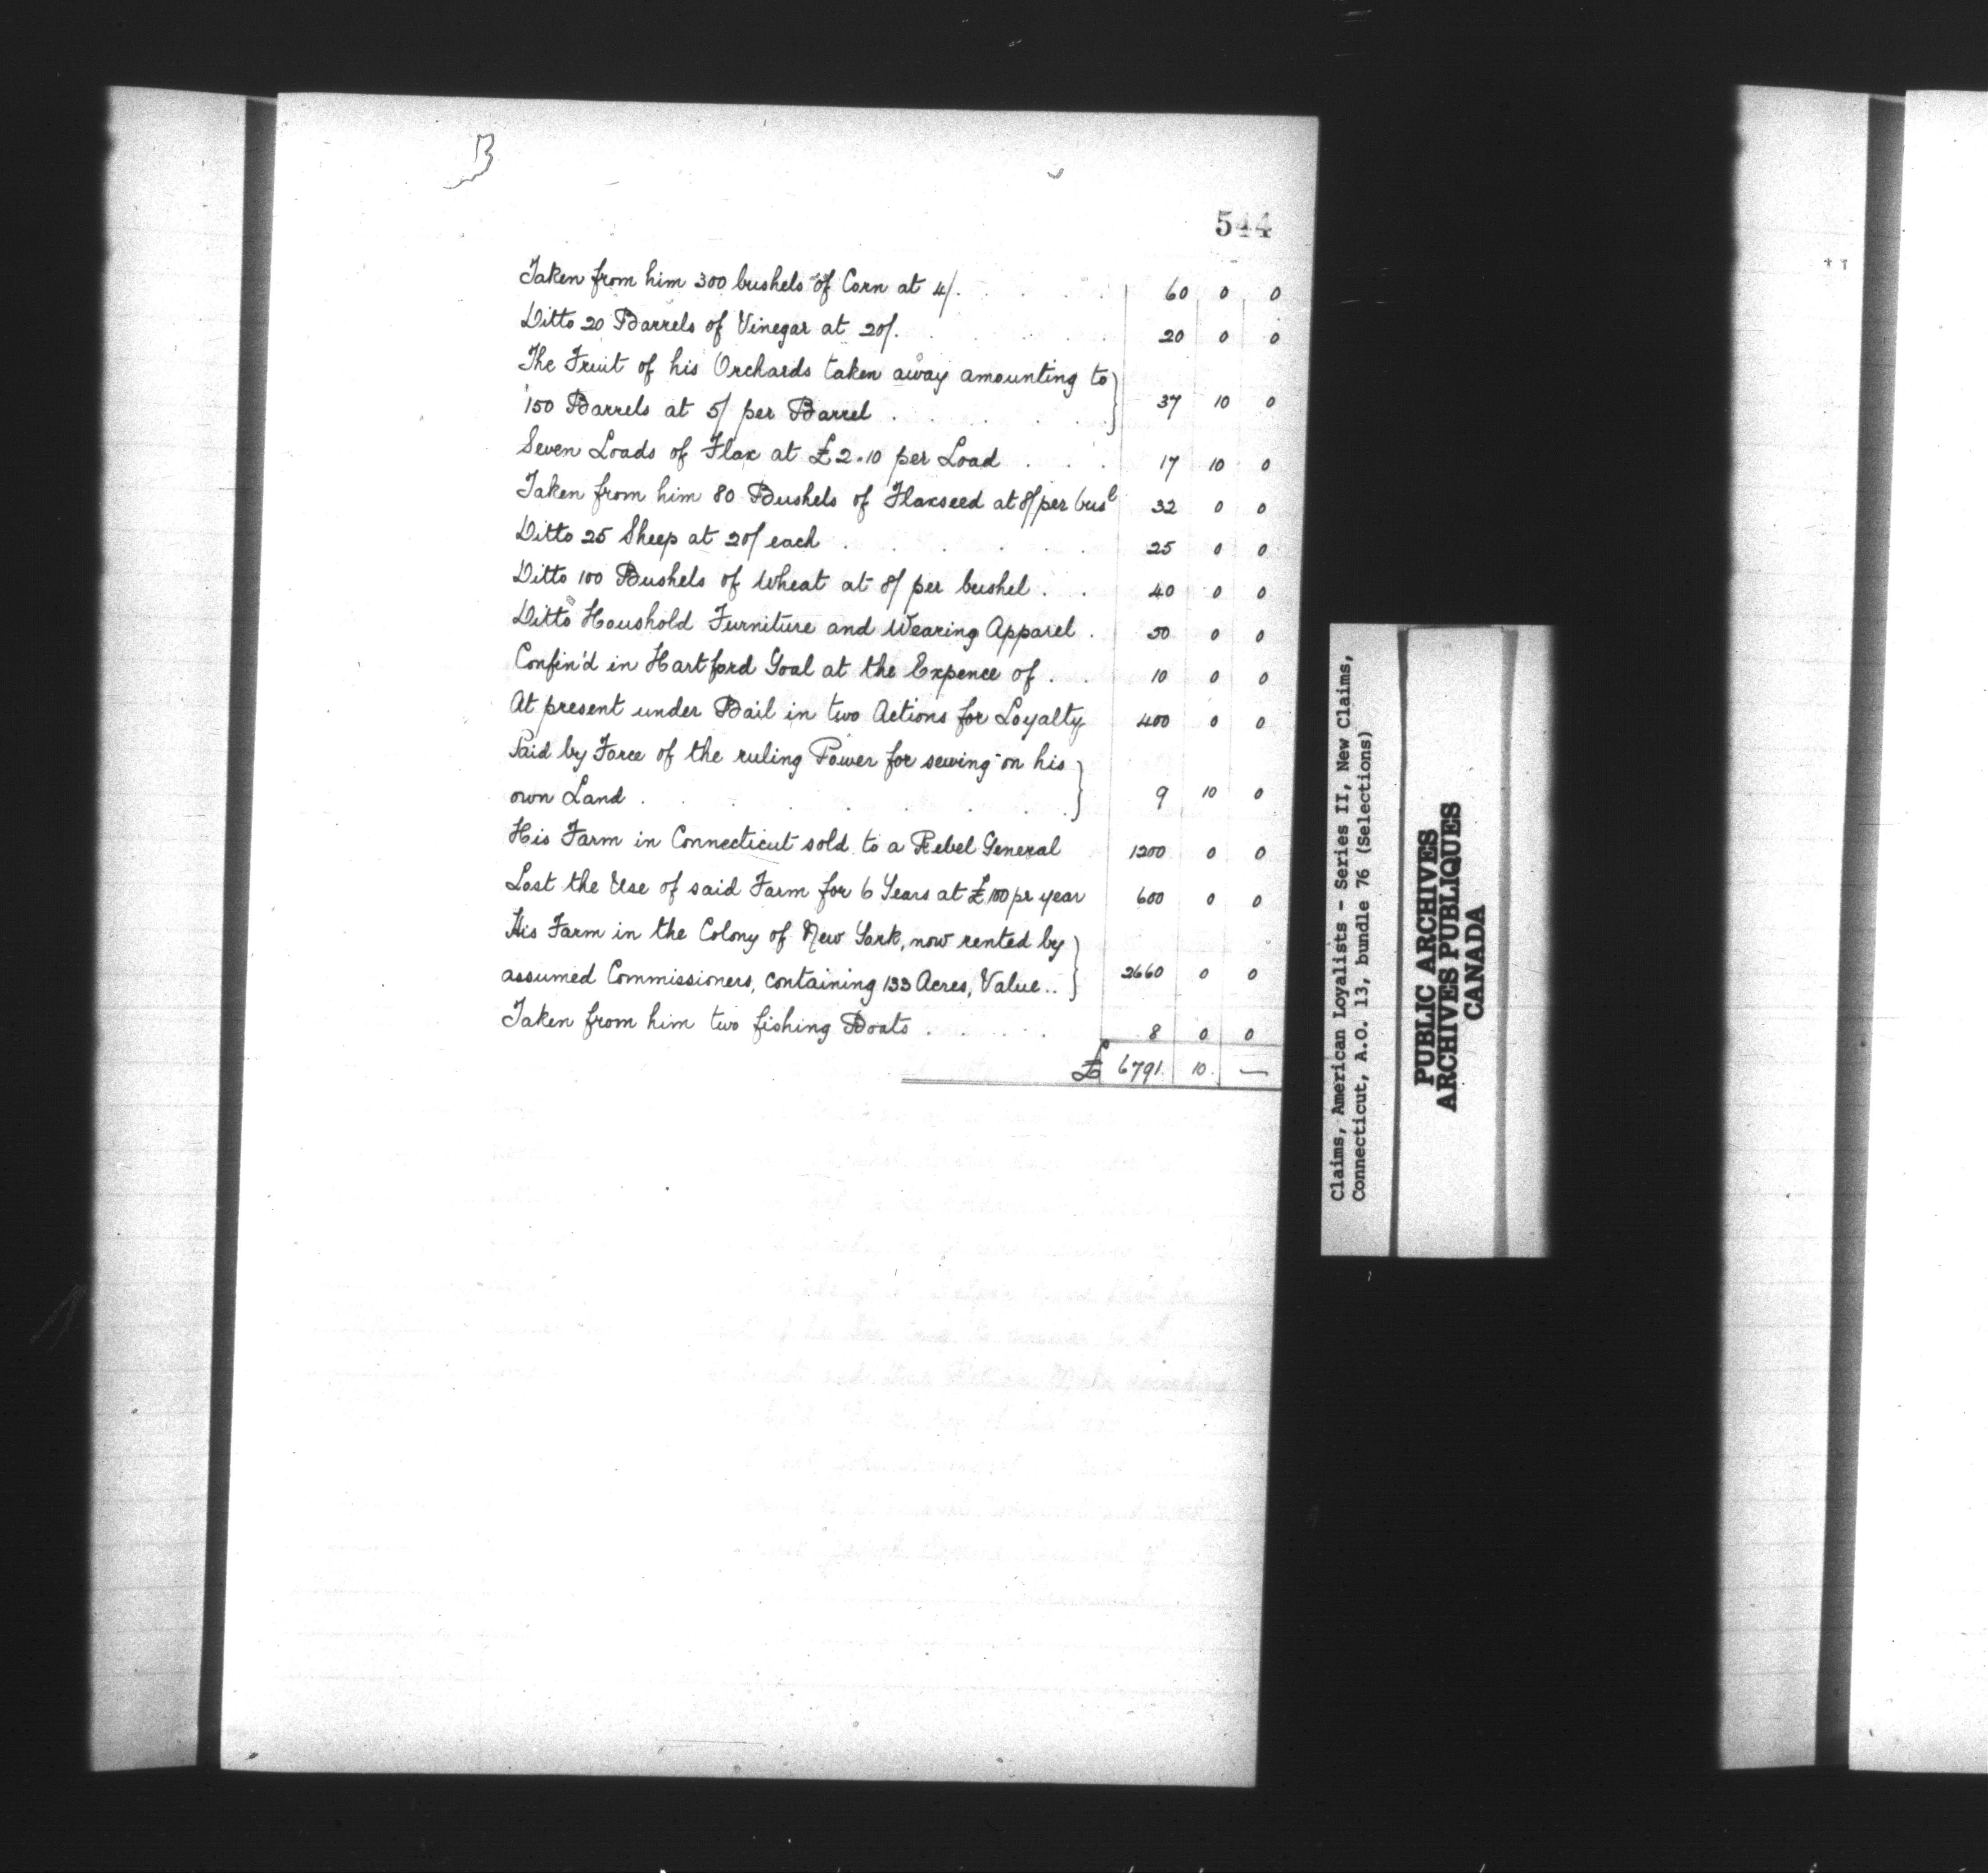 B
544
Taken from him 300 bushels of Corn at 4/. 60 0 0
Ditto 20 Barrels of Vinegar at 20/. 20 0 0
The Fruit of his Orchards taken away amounting to
150 Barrels at 5/ per Barrel . 37 10 0
Seven Loads of Flax at £2.10 per Load . . . 17 10 0
Taken from him 80 Bushels of Flaxseed at 8/ per busl 32 0 0
Ditto 25 Sheep at 20/ each . 25 0 0
Ditto 100 Bushels of Wheat at 8/ per bushel . . 40 0 0
Ditto Houshold Furniture and Wearing Apparel . 50 0 0
Confin'd in Hartford Goal at the Expence of . . 10 0 0
At present under Bail in two Actions for Loyalty 400 0 0
Paid by Force of the ruling Power for sewing on his
own Land . 9 10 0
His Farm in Connecticut sold to a Rebel General 1200 0 0
Lost the Use of said Farm for 6 Years at £100 pr year 600 0 0
His Farm in the Colony of New York, now rented by
assumed Commissioners, containing 133 Acres, Value .. 2660 0 0
Taken from him two fishing Boats . . . . . 8 0 0
£ 6791. 10. —
Claims, American Loyalists - Series II, New Claims,
Connecticut, A.O. 13, bundle 76 (Selections)
PUBLIC ARCHIVES
ARCHIVES PUBLIQUES
CANADA